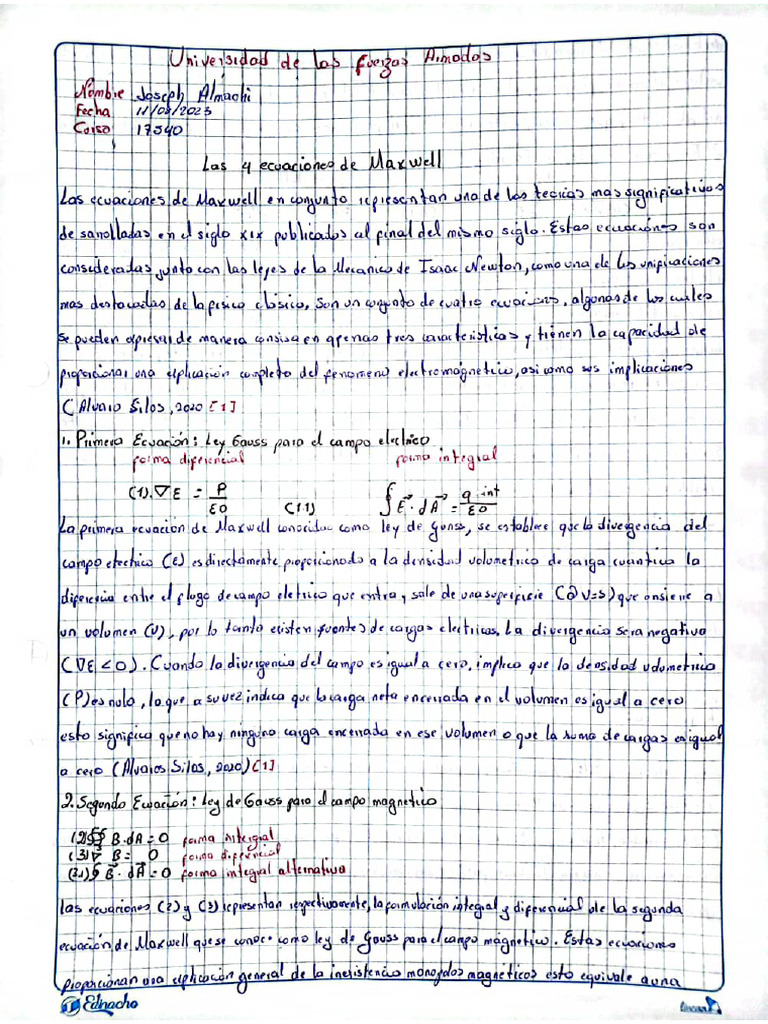 Universidad de las fuerzas Armadas
Nombre Joseph Almachi
Fecha 11/08/2023
Curso 17540
Las 4 ecuaciones de Maxwell
Las ecuaciones de Maxwell en conjunto representan una de las teorias mas significativas
de sarrolladas en el siglo XIX publicados al final del mismo siglo. Estas ecuaciónes son
consideradas, junto con las leyes de la Mecanica de Isaac Newton, como una de las unificaciones
mas destacadas de la fisica clásica, son un conjunto de cuatro ecuaciones, algunas de los cuales
se pueden expresar de manera consisa en apenas tres caracteristicas y tienen la capacidad de
proporcionar una explicación completa del fenomeno electromagnetico, asi como sus implicaciones
(Alvaro Silos, 2020 [1]
1. Primera Ecuación: Ley Gauss para el campo electrico
forma diferencial forma integral
(1). ∇E = P/ε0 (1.1) ∮E⃗ · dA⃗ = q int/ε0
La primera ecuación de Maxwell conocida como ley de gauss, se establece que la divergencia del
campo electrico (E) es directamente proporcionado a la densidad volumetrica de carga cuantica la
diferencia entre el flugo de campo eletrico que entra y sale de una superficie (∂V=S) que ensiene a
un volumen (V), por lo tanto existen fuentes de cargas electricas. La divergencia sera negativa
(∇E < 0). Cuando la divergencia del campo es igual a cero, implica que la densidad volumetrica
(P) es nula, lo que a su vez indica que la carga neta encerrada en el volumen es igual a cero
esto significa que no hay ninguna carga encerrada en ese volumen o que la suma de cargas es igual
a cero (Alvaros Silos, 2020) [1]
2. Segunda Ecuación: Ley de Gauss para el campo magnetico
(2) ∯ B · dA = 0 forma integral
(3) ∇ B = 0 forma diferencial
(3.1) ∮ B⃗ · dA⃗ = 0 forma integral alternativa
Las ecuaciones (2) y (3) representan respectivamente, la formulación integral y diferencial de la segunda
ecuación de Maxwell que se conoce como ley de Gauss para el campo magnetico. Estas ecuaciones
proporcionan una explicación general de la inexistencia monopolos magneticos esto equivale a una
Ednacho